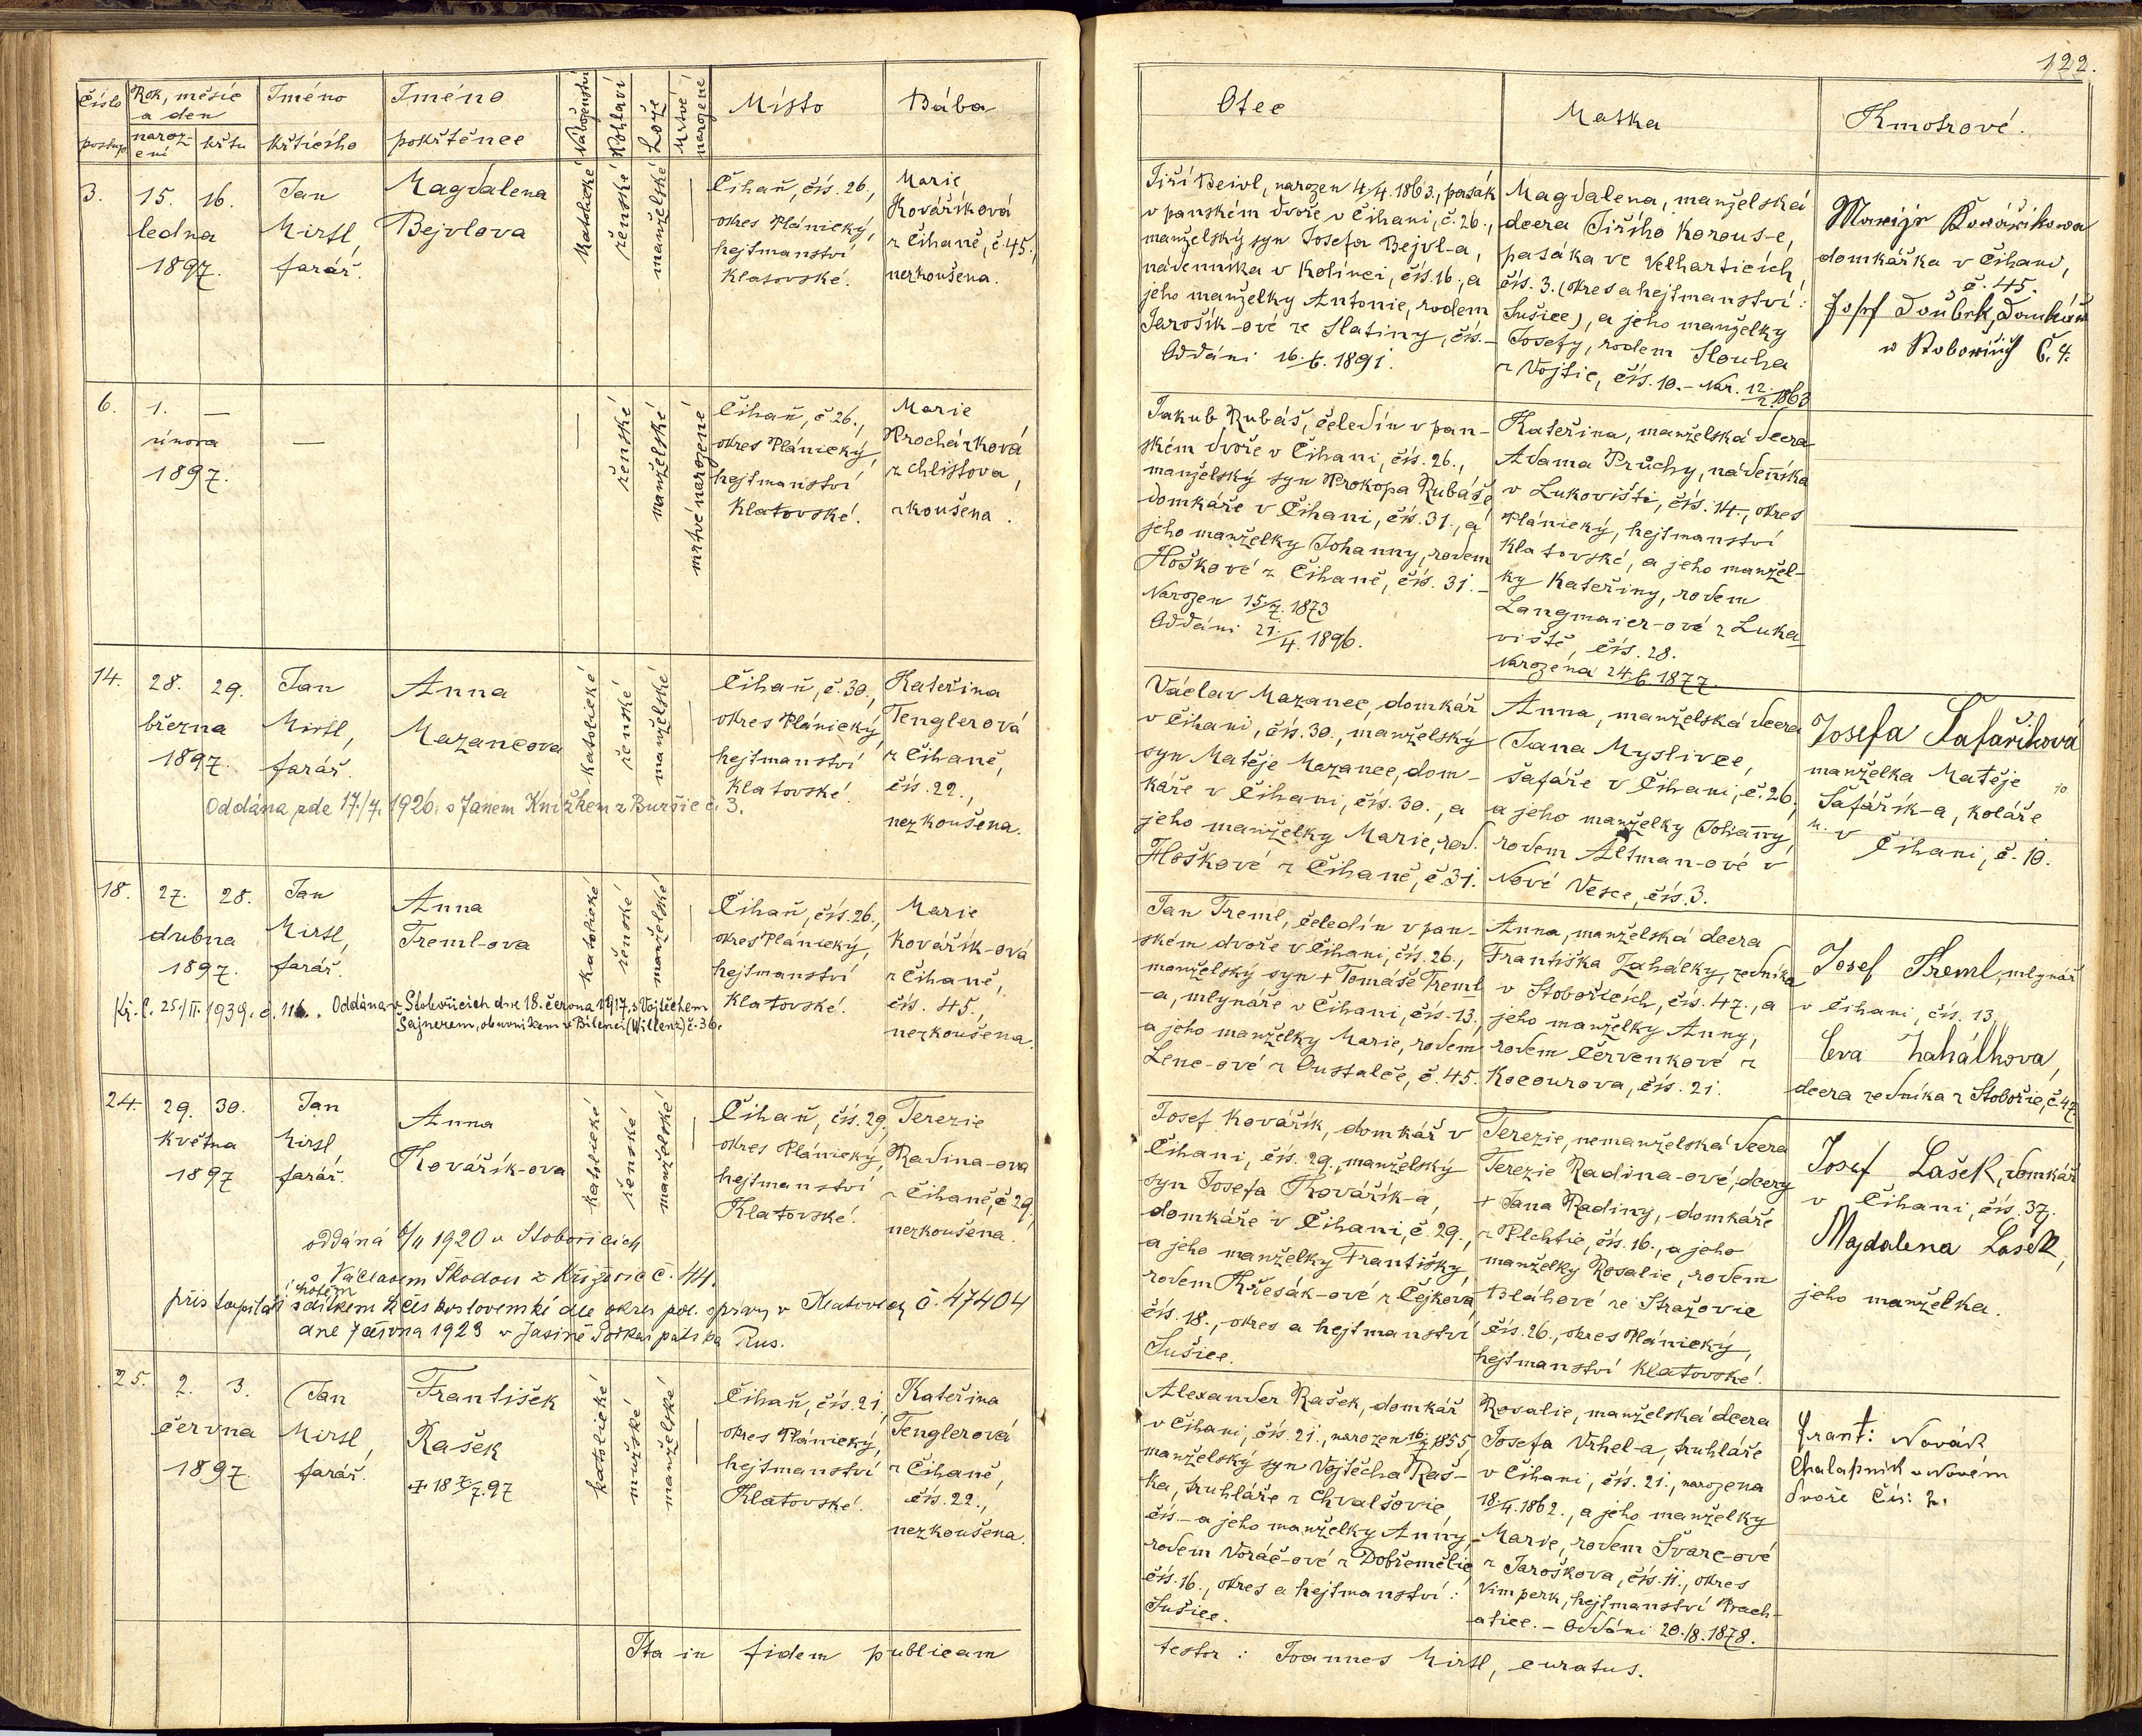 122.
Číslo
postup
Rok, měsíc
a den
naroz-
ení
křtu
Jméno
křtícího
Jméno
pokřtěnce
Náboženství
Pohlaví
Lože
Mrtvě
narozené
Místo
Bába
Otec
Matka
Kmotrové.
3.
15. 16.
ledna
1897.
Jan
Mirtl,
farář.
Magdalena
Bejvlova
katolické
ženské
manželské
Čihaň, čís. 26.,
okres Plánický,
hejtmanství
Klatovské.
Marie
Kováříková
z Čihaně, č. 45.,
nezkoušena.
Jiří Beivl, narozen 4/4. 1863., pasák
v panském dvoře v Čihani, č. 26.,
manželský syn Josefa Bejvl-a,
nádenníka v Kolinci, čís. 16., a
jeho manželky Antonie, rodem
Jarošík-ové ze Slatiny, čís. –
Oddáni 16./6. 1891.
Magdalena, manželská
dcera Jiřího Korous-e,
pasáka ve Velharticích
čís. 3. (okres a hejtmanství:
Sušice), a jeho manželky
Josefy, rodem Slouha
z Vojtic, čís. 10. – Nar. 12./2. 1863
Marija Kovářikowa
domkářka v Čihani,
č. 45.
Josef Doubek, Domkář
w Stobořicích Č. 4.
6.
1. —
února
1897.
—
—
ženské
manželské
mrtvě narozené
Čihaň, č. 26.,
okres Plánický,
hejtmanství
Klatovské.
Marie
Procházková
z Chlistova,
zkoušena.
Jakub Rubáš, čeledín v pan-
ském dvoře v Čihani, čís. 26.,
manželský syn Prokopa Rubáše,
domkáře v Čihani, čís. 31., a
jeho manželky Johanny, rodem
Hoškové z Čihaně, čís. 31. –
Narozen 15/7. 1873
Oddáni 21./4. 1896.
Kateřina, manželská dcera
Adama Průchy, nádeníka
v Lukovišti, čís. 14., okres
Plánický, hejtmanství
Klatovské, a jeho manžel-
ky Kateřiny, rodem
Langmaier-ové z Luka-
viště, čís. 28.
Narozena 24/6. 1877
14.
28. 29.
března
1897.
Jan
Mirtl,
farář.
Anna
Mazancova
katolické
ženské
manželské
Čihaň, č. 30.,
okres Plánický,
hejtmanství
Klatovské.
Kateřina
Tenglerová
z Čihaně,
čís. 22.,
nezkoušena.
Oddána zde 17./4. 1926. s Janem Knížkem z Buršic č. 3.
Václav Mazanec, domkář
v Čihani, čís. 30., manželský
syn Matěje Mazance, dom-
káře v Čihani, čís. 30., a
jeho manželky Marie, rod.
Hoškové z Čihaně, č. 31.
Anna, manželská dcera
Jana Myslivce,
šafáře v Čihani, č. 26.,
a jeho manželky Johanny,
rodem Altman-ové v
Nové Vesce, čís. 3.
Josefa Šafaříková
manželka Matěje
Šafařík-a, koláře
v Čihani, č. 10.
18.
27. 28.
dubna
1897.
Jan
Mirtl,
farář.
Anna
Treml-ova
katolické
ženské
manželské
Čihaň, čís. 26.,
okres Plánický,
hejtmanství
Klatovské.
Marie
Kovářík-ová
z Čihaně,
čís. 45.,
nezkoušena.
Kř. l. 25./II. 1939. č. 116. Oddána v Stobořicích dne 18. června 1917, s Vojtěchem
Šajnerem, obuvníkem v Bilenci (Willenz) č. 36.
Jan Treml, čeledín v pan-
ském dvoře v Čihani, čís. 26.,
manželský syn + Tomáše Treml
-a, mlynáře v Čihani, čís. 13.,
a jeho manželky Marie, rodem
Lenc-ové z Oustalče, č. 45.
Anna, manželská dcera
Františka Zahálky, zedníka
v Stobořicích, čís. 47., a
jeho manželky Anny,
rodem Červenkové z
Kocourova, čís. 21.
Josef Treml, mlynář
v Čihani, čís. 13.
Eva Zahálkova,
dcera zedníka z Stobořic, č. 47
24.
29. 30.
května
1897
Jan
Mirtl
farář.
Anna
Kovářík-ova
katolické
ženské
manželské
Čihaň, čís. 29.,
okres Plánický,
hejtmanství
Klatovské.
Terezie
Radina-ova
z Čihaně, č. 29.,
nezkoušena.
oddána 6/11 1920 v Stobořicích
s Václavem Škodou z Křižovic č. 44.
přistoupila s chotěm
i dítkem k čís koslovenské dle okres pol. správy v Klatovech č. 47404
dne 7 června 1923 v Jasině Podkarpatská Rus.
Josef Kovářík, domkář v
Čihani, čís. 29., manželský
syn Josefa Kovářík-a,
domkáře v Čihani, č. 29.,
a jeho manželky Františky,
rodem Křesák-ové z Čejkova,
čís. 18., okres a hejtmanství
Sušice.
Terezie, nemanželská dcera
Terezie Radina-ové, dcery
+ Jana Radiny, domkáře
z Plchtic, čís. 16., a jeho
manželky Rosalie, rodem
Bláhové ze Stražovic
čís. 26., okres Plánický,
hejtmanství Klatovské.
Josef Lašek, domkář
v Čihani, čís. 37.
Majdalena Lašek,
jeho manželka.
25.
2. 3.
června
1897.
Jan
Mirtl,
farář.
František
Rašek
+ 18 7/7. 97
katolické
mužské
manželské
Čihaň, čís. 21.,
okres Plánický,
hejtmanství
Klatovské.
Kateřina
Tenglerová
z Čihaně,
čís. 22.,
nezkoušena.
Alexander Rašek, domkář
v Čihani, čís. 21., narozen 16/7 1855,
manželský syn Vojtěcha Raš-
ka, truhláře z Chvalšovic,
čís. – a jeho manželky Anny,
rodem Voráč-ové z Dobřemělic,
čís. 16., okres a hejtmanství:
Sušice.
Rosalie, manželská dcera
Josefa Vrhel-a, truhláře
v Čihani, čís. 21., narozena
18/4. 1862., a jeho manželky
Marie, rodem Švarc-ové
z Jaroškova, čís. 11., okres
Vimperk, hejtmanství Prach-
atice. – Oddáni 20./8. 1878.
Frant: Novák
Chalupník v Novém
Dvoře Čís: 2.
Ita in fidem publicam
testor: Joannes Mirtl, curatus.